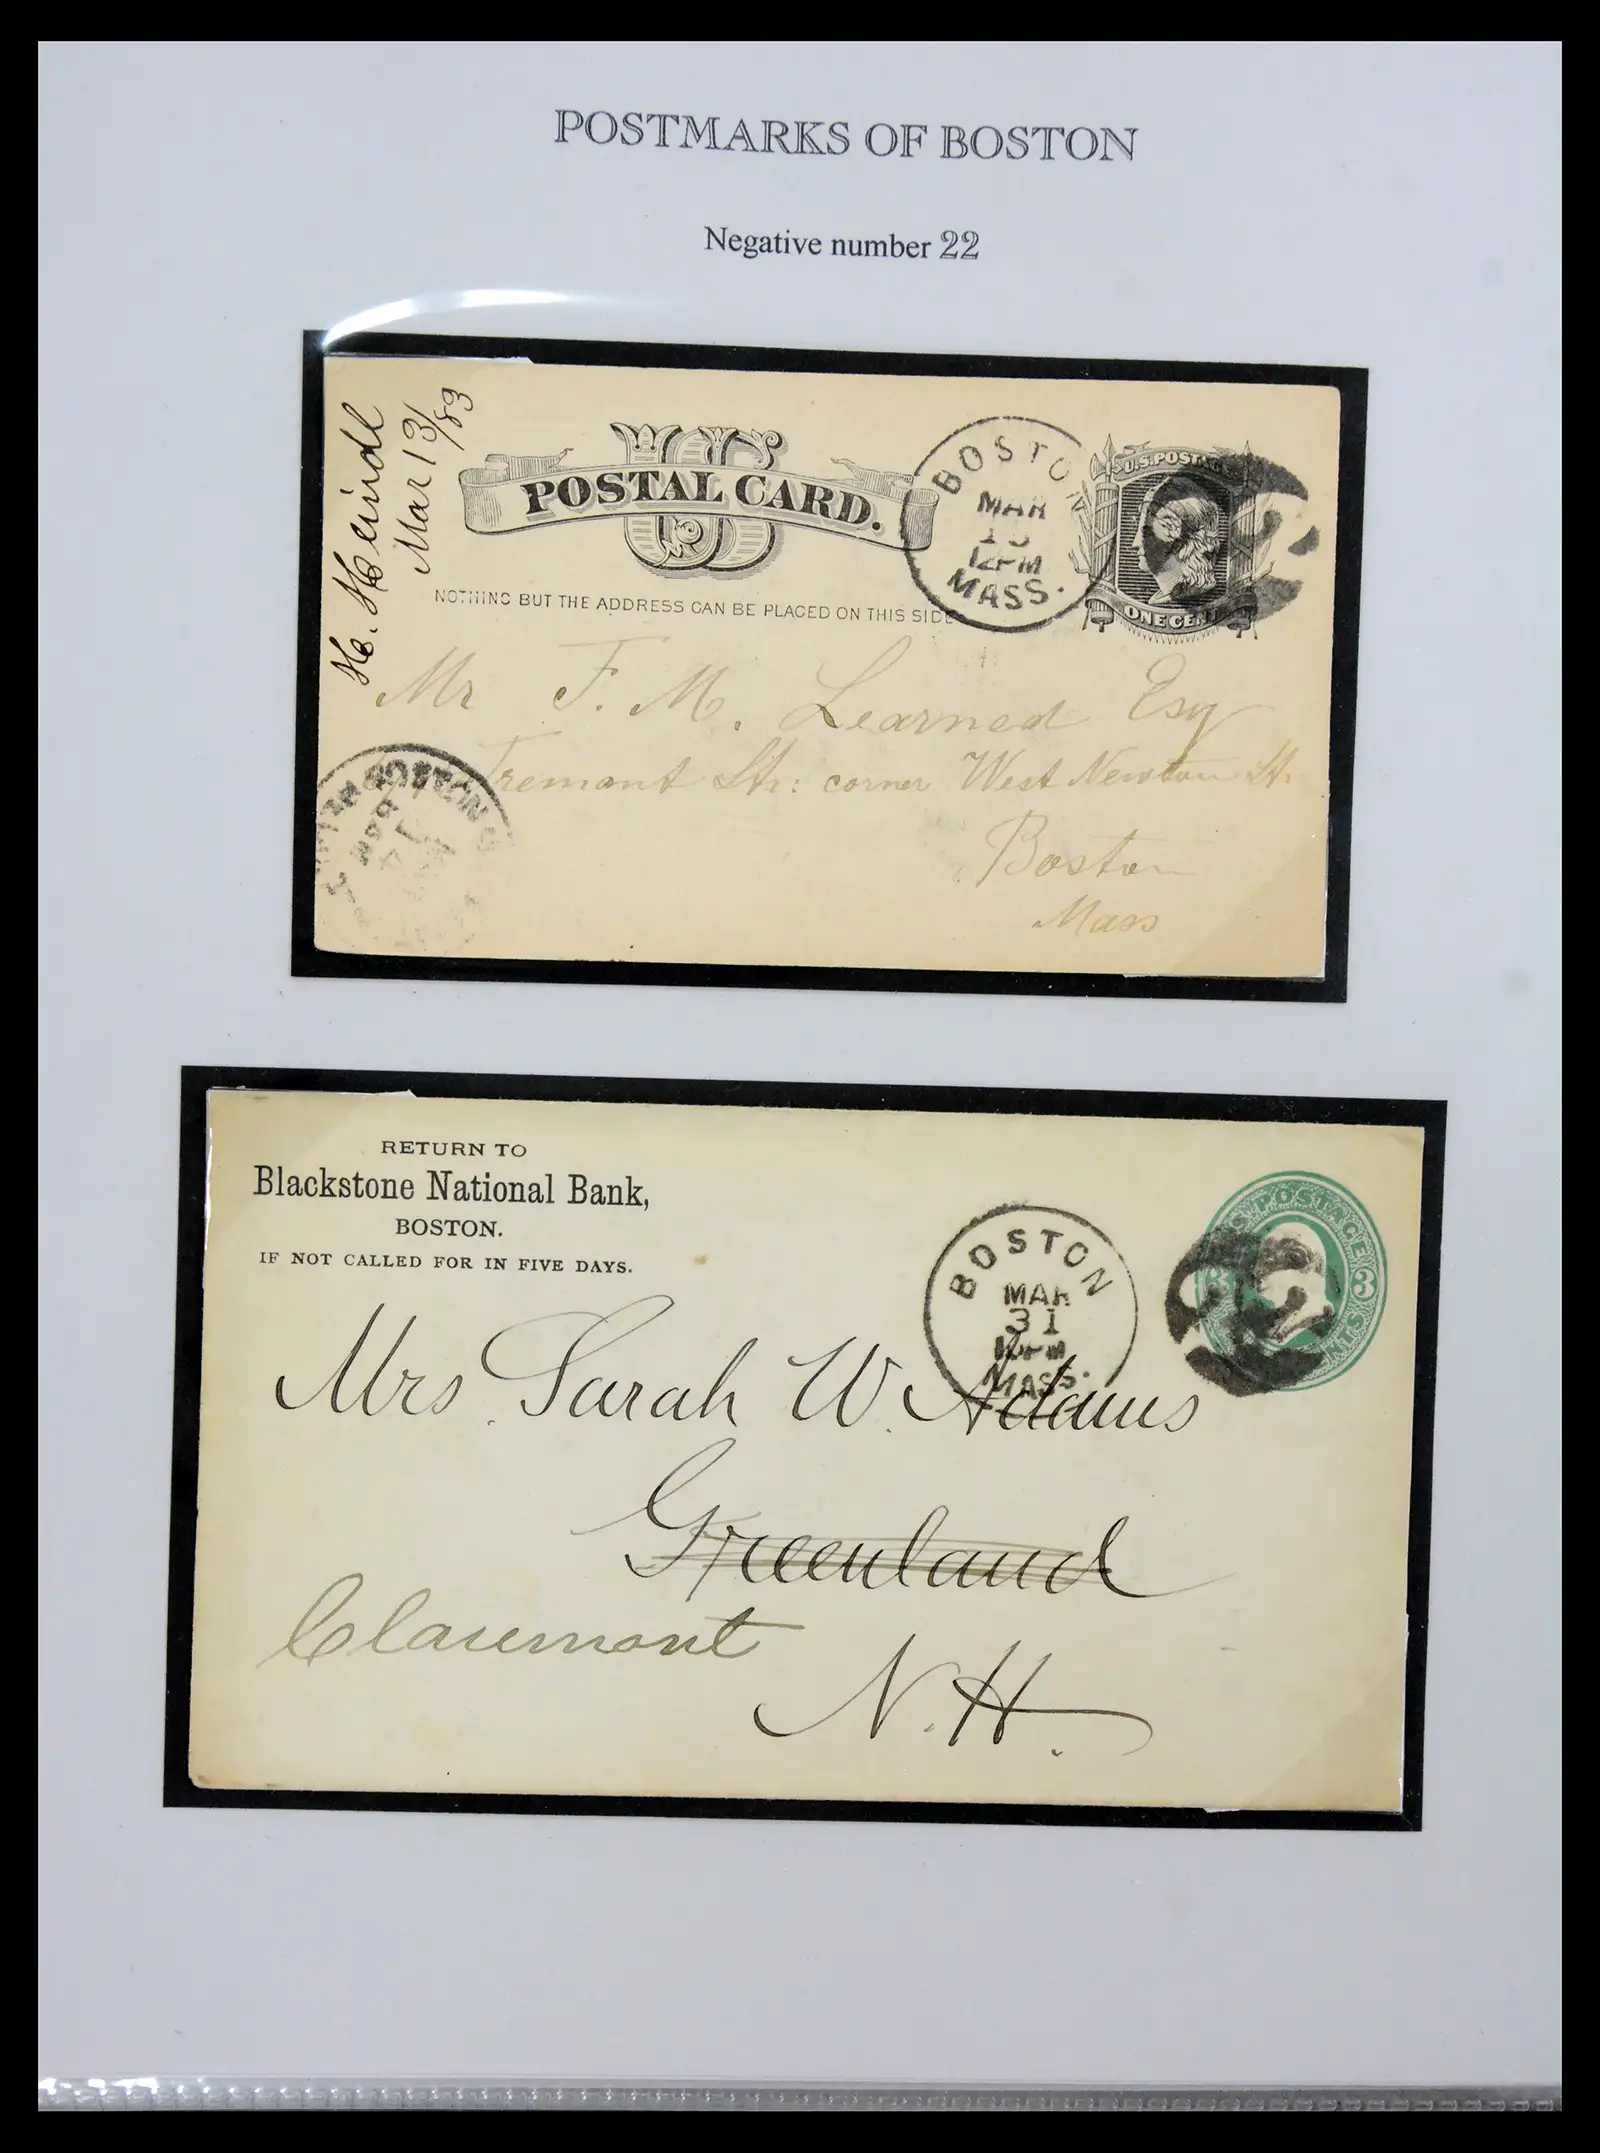 POSTMARKS OF BOSTON
Negative number 22
H. Heindl
Mar 13/83
US
POSTAL CARD.
NOTHING BUT THE ADDRESS CAN BE PLACED ON THIS SIDE
BOSTON
MAR
12PM
MASS.
U.S. POSTAGE
ONE CENT
Mr F. M. Learned Esq
Tremont Str: corner West Newton St.
Boston
Mass
BOSTON
RETURN TO
Blackstone National Bank,
BOSTON.
IF NOT CALLED FOR IN FIVE DAYS.
BOSTON
MAR
31
12PM
MASS.
U.S. POSTAGE
3 3
CENTS
Mrs. Sarah W. Adams
Greenland
Claremont
N. H.